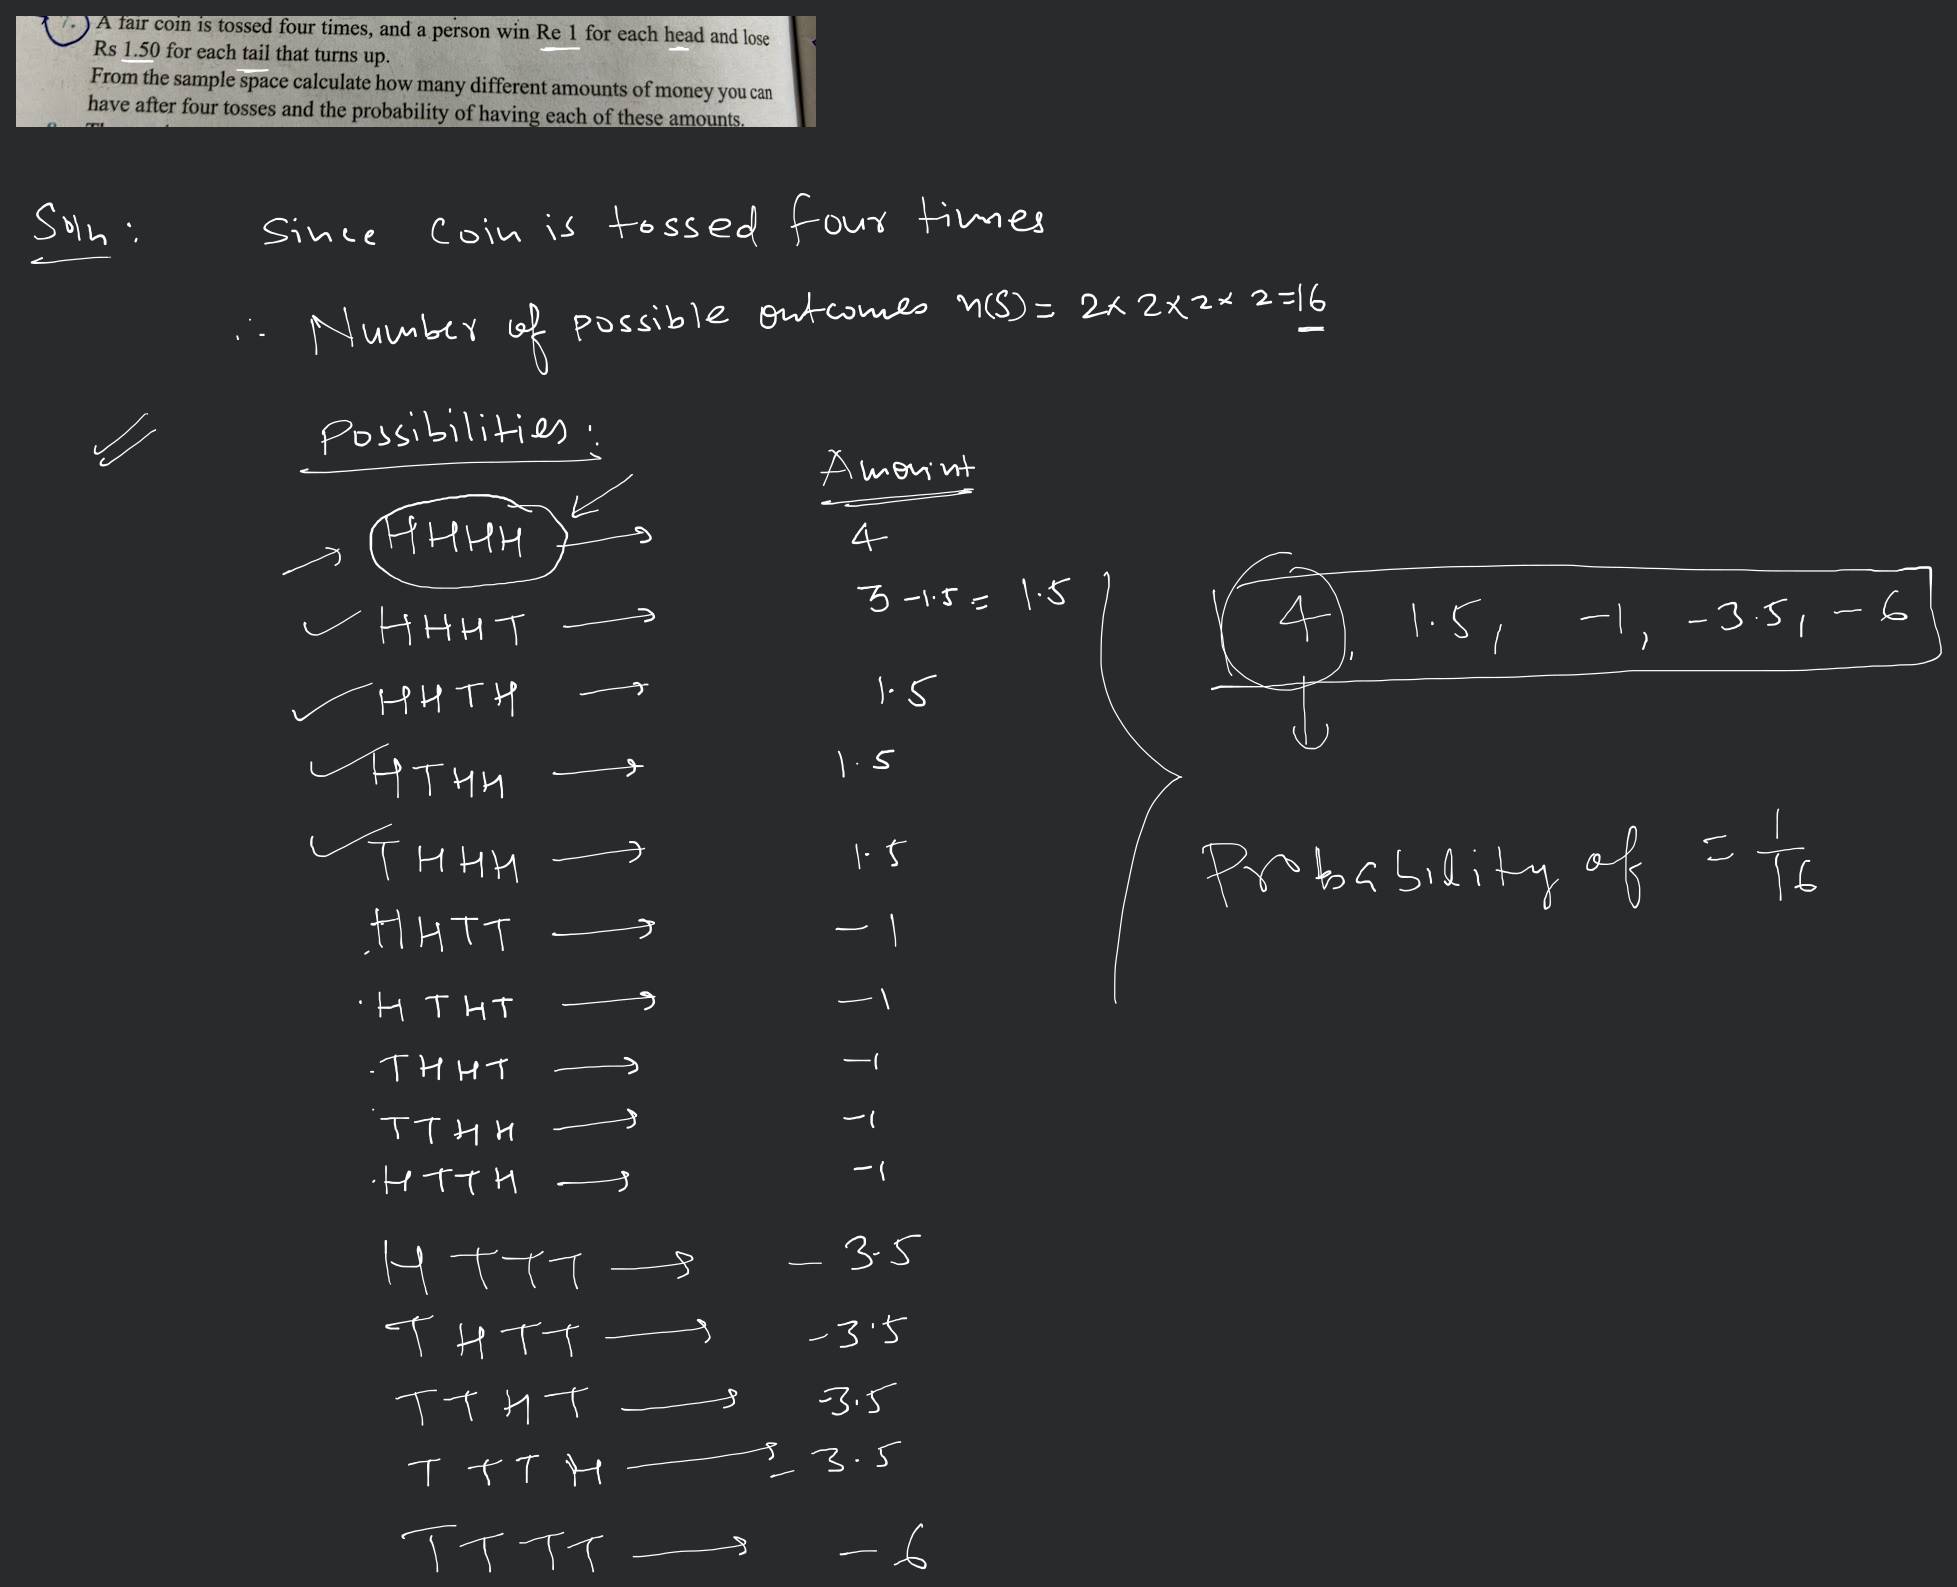 7. A fair coin is tossed four times, and a person win Re 1 for each head and lose
Rs 1.50 for each tail that turns up.
From the sample space calculate how many different amounts of money you can
have after four tosses and the probability of having each of these amounts.
Soln : Since coin is tossed four times
∴ Number of possible outcomes n(S) = 2 x 2 x 2 x 2 = 16
Possibilities :
Amount
HHHH → 4
HHHT → 3 - 1.5 = 1.5
HHTH → 1.5
HTHH → 1.5
THHH → 1.5
HHTT → -1
HTHT → -1
THHT → -1
TTHH → -1
HTTH → -1
HTTT → -3.5
THTT → -3.5
TTHT → -3.5
TTTH → -3.5
TTTT → -6
4, 1.5, -1, -3.5, -6
Probability of = 1/16